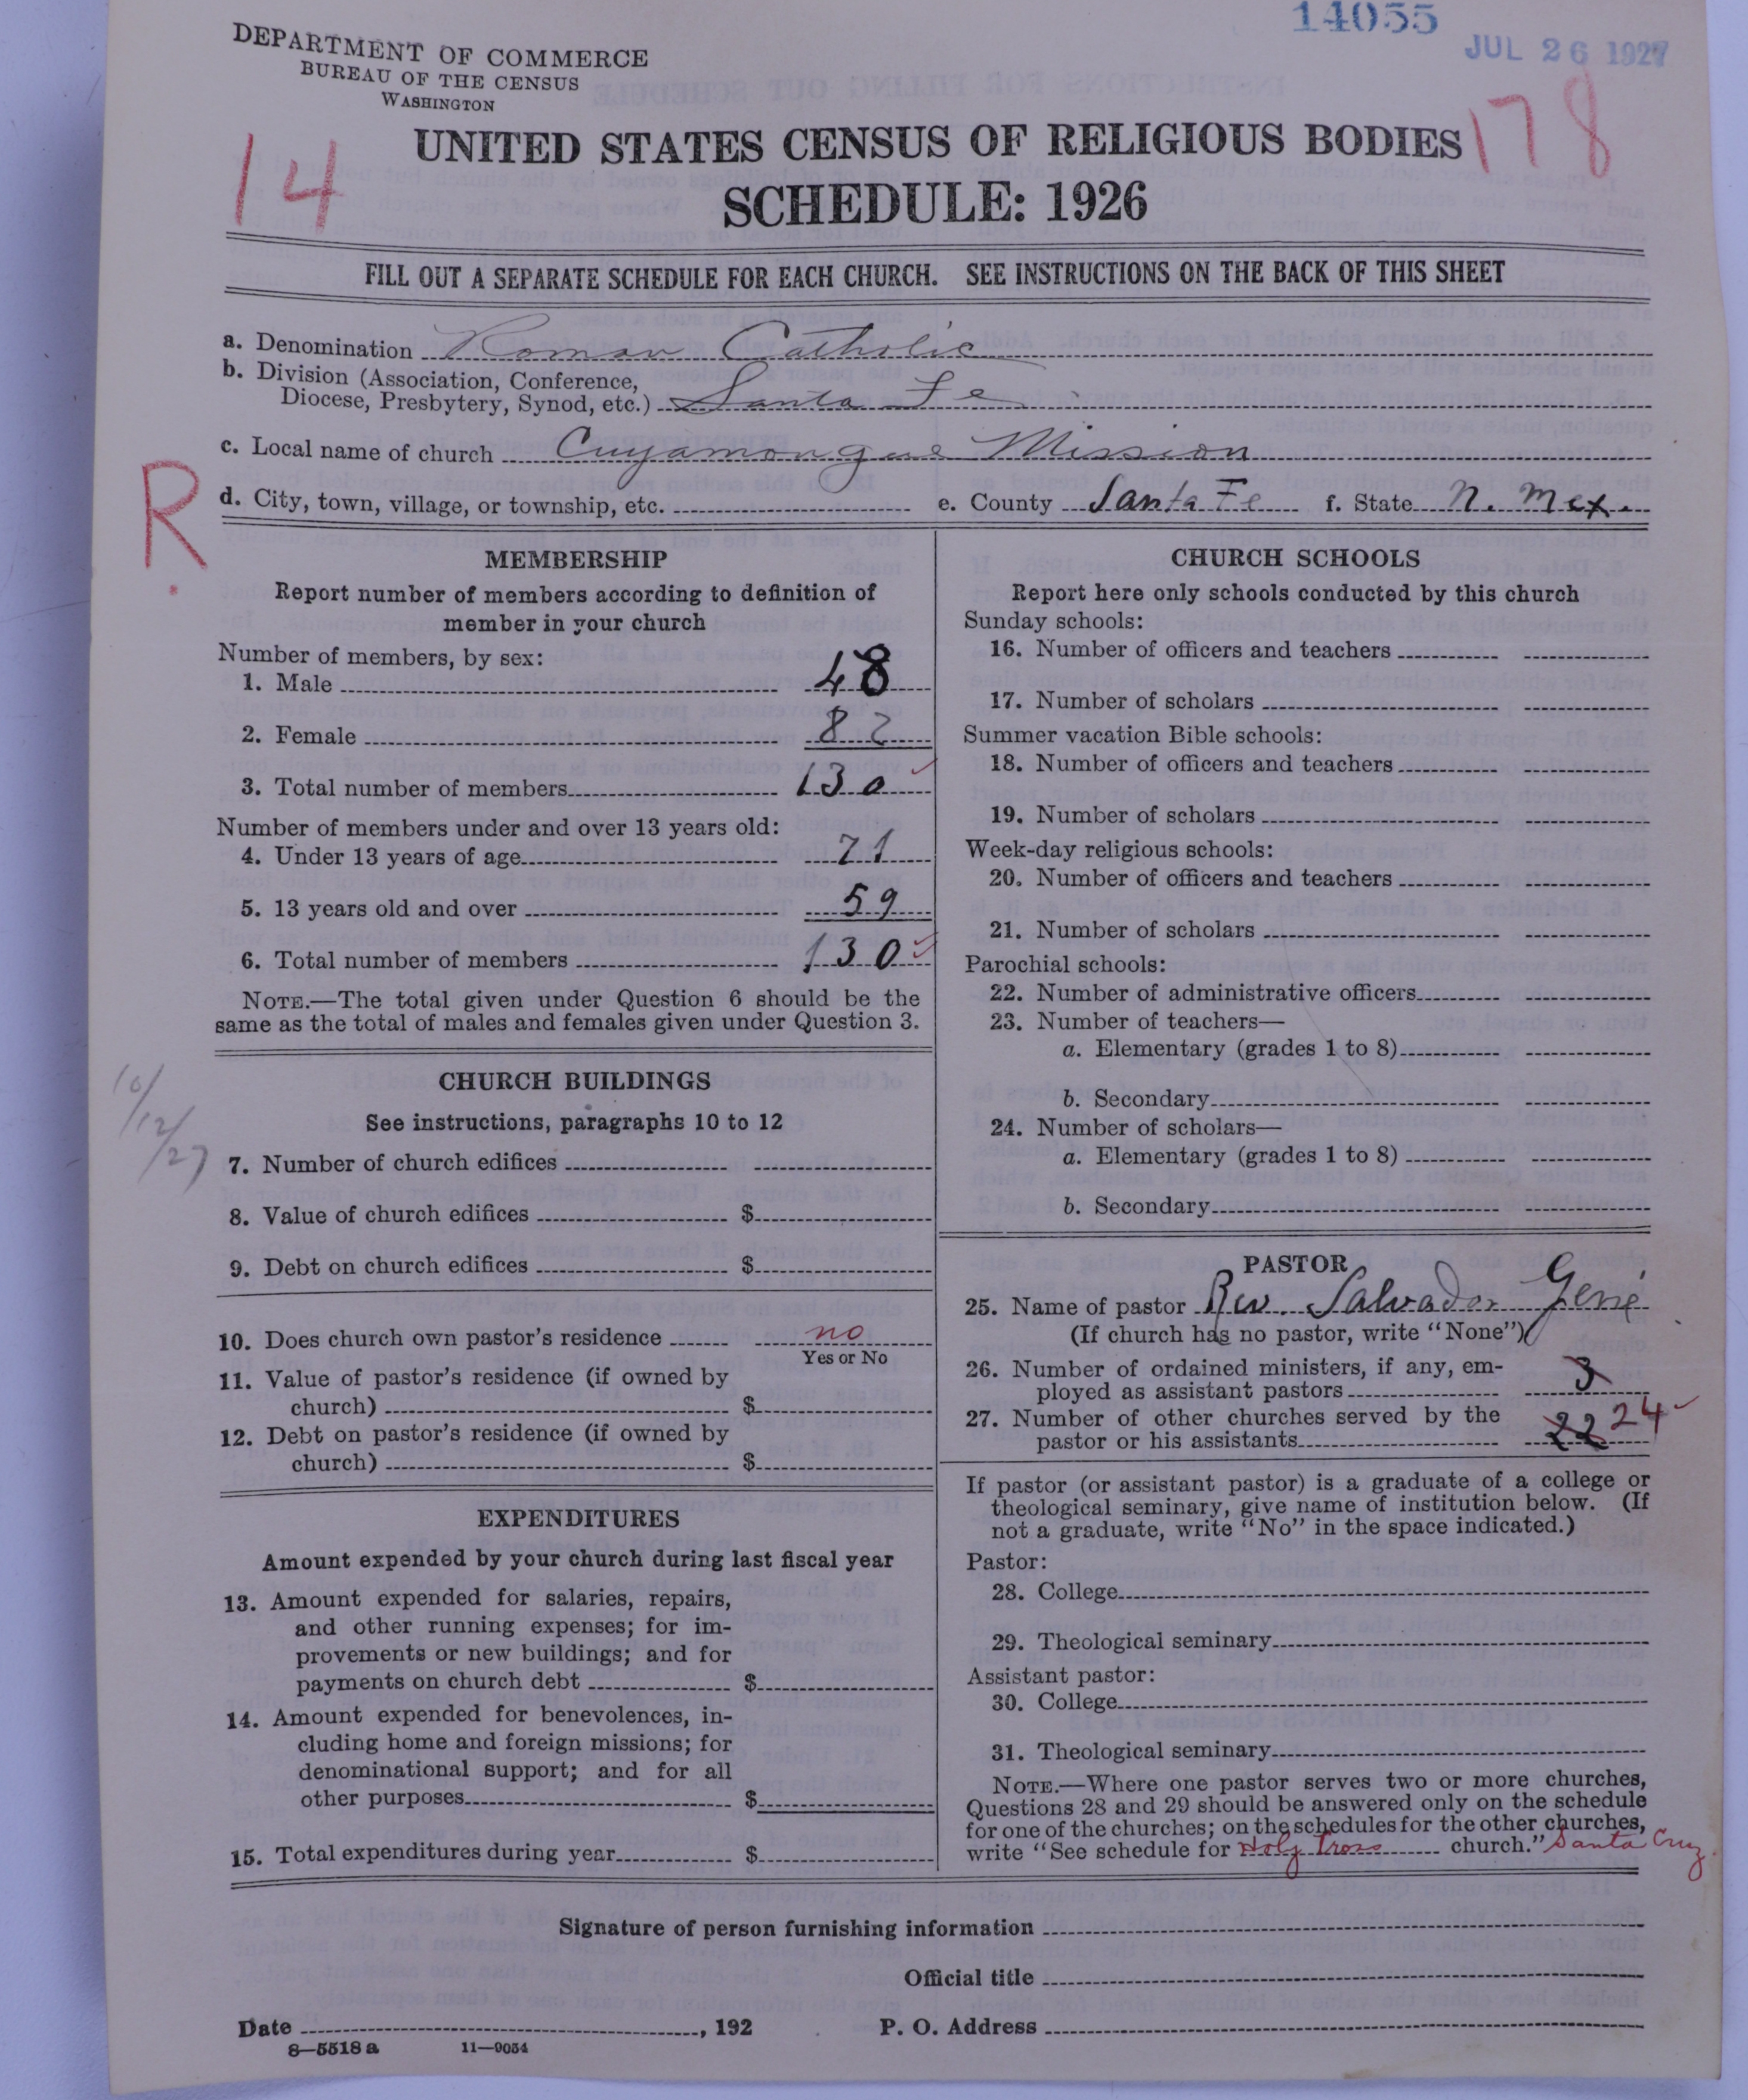 14055
JUL 26 1927
DEPARTMENT OF COMMERCE
BUREAU OF THE CENSUS
WASHINGTON
14
178
UNITED STATES CENSUS OF RELIGIOUS BODIES
SCHEDULE: 1926
FILL OUT A SEPARATE SCHEDULE FOR EACH CHURCH. SEE INSTRUCTIONS ON THE BACK OF THIS SHEET
a. Denomination Roman Catholic
b. Division (Association, Conference,
Diocese, Presbytery, Synod, etc.) Santa Fe
c. Local name of church Cuyamongue Mission
R.
d. City, town, village, or township, etc. e. County Santa Fe f. State N. Mex.
MEMBERSHIP
Report number of members according to definition of
member in your church
Number of members, by sex:
1. Male 48
2. Female 82
3. Total number of members 130
Number of members under and over 13 years old:
4. Under 13 years of age 71
5. 13 years old and over 59
6. Total number of members 130
NOTE.—The total given under Question 6 should be the
same as the total of males and females given under Question 3.
10/12/27
CHURCH BUILDINGS
See instructions, paragraphs 10 to 12
7. Number of church edifices
8. Value of church edifices $
9. Debt on church edifices $
10. Does church own pastor's residence no
Yes or No
11. Value of pastor's residence (if owned by
church) $
12. Debt on pastor's residence (if owned by
church) $
EXPENDITURES
Amount expended by your church during last fiscal year
13. Amount expended for salaries, repairs,
and other running expenses; for im-
provements or new buildings; and for
payments on church debt $
14. Amount expended for benevolences, in-
cluding home and foreign missions; for
denominational support; and for all
other purposes $
15. Total expenditures during year $
CHURCH SCHOOLS
Report here only schools conducted by this church
Sunday schools:
16. Number of officers and teachers
17. Number of scholars
Summer vacation Bible schools:
18. Number of officers and teachers
19. Number of scholars
Week-day religious schools:
20. Number of officers and teachers
21. Number of scholars
Parochial schools:
22. Number of administrative officers
23. Number of teachers—
a. Elementary (grades 1 to 8)
b. Secondary
24. Number of scholars—
a. Elementary (grades 1 to 8)
b. Secondary
PASTOR
25. Name of pastor Rev. Salvador Gené
(If church has no pastor, write "None")
26. Number of ordained ministers, if any, em-
ployed as assistant pastors 3
27. Number of other churches served by the
pastor or his assistants 22 24
If pastor (or assistant pastor) is a graduate of a college or
theological seminary, give name of institution below. (If
not a graduate, write "No" in the space indicated.)
Pastor:
28. College
29. Theological seminary
Assistant pastor:
30. College
31. Theological seminary
NOTE.—Where one pastor serves two or more churches,
Questions 28 and 29 should be answered only on the schedule
for one of the churches; on the schedules for the other churches,
write "See schedule for Holy Cross church." Santa Cruz
Signature of person furnishing information
Official title
Date , 192 P. O. Address
8—5518 a 11—9054